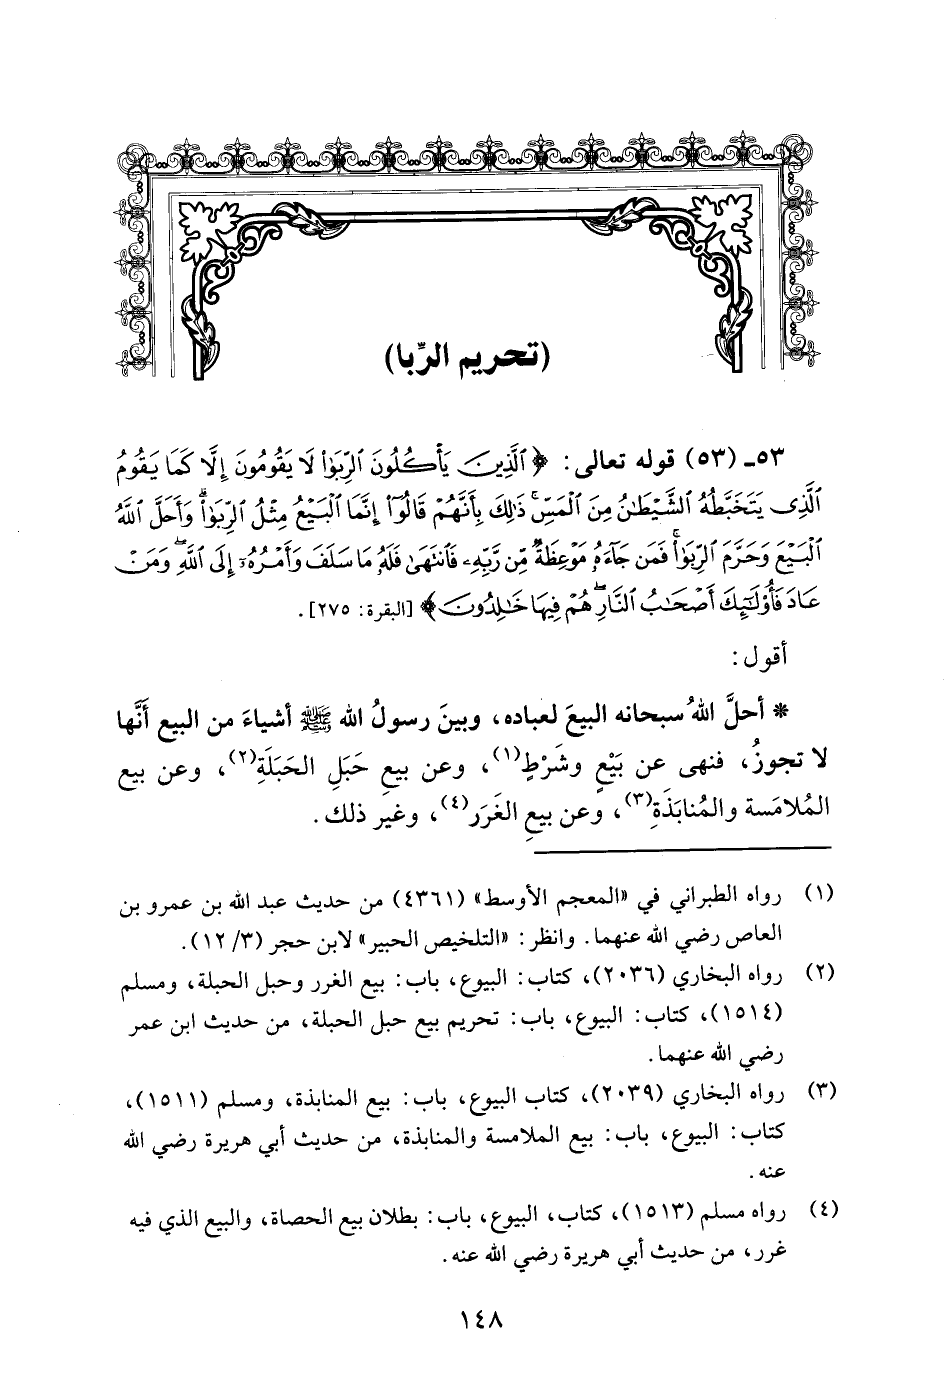 (تحريم الرِّبا)
٥٣ـ (٥٣) قوله تعالى: ﴿ٱلَّذِينَ يَأْكُلُونَ ٱلرِّبَوٰا۟ لَا يَقُومُونَ إِلَّا كَمَا يَقُومُ
ٱلَّذِى يَتَخَبَّطُهُ ٱلشَّيْطَـٰنُ مِنَ ٱلْمَسِّ ۚ ذَٰلِكَ بِأَنَّهُمْ قَالُوٓا۟ إِنَّمَا ٱلْبَيْعُ مِثْلُ ٱلرِّبَوٰا۟ ۗ وَأَحَلَّ ٱللَّهُ
ٱلْبَيْعَ وَحَرَّمَ ٱلرِّبَوٰا۟ ۚ فَمَن جَآءَهُۥ مَوْعِظَةٌ مِّن رَّبِّهِۦ فَٱنتَهَىٰ فَلَهُۥ مَا سَلَفَ وَأَمْرُهُۥٓ إِلَى ٱللَّهِ ۖ وَمَنْ
عَادَ فَأُو۟لَـٰٓئِكَ أَصْحَـٰبُ ٱلنَّارِ ۖ هُمْ فِيهَا خَـٰلِدُونَ﴾ [البقرة: ٢٧٥].
أقول:
* أحلَّ اللهُ سبحانه البيعَ لعباده، وبينَ رسولُ الله ﷺ أشياءَ من البيع أَنَّها
لا تجوزُ، فنهى عن بَيْعٍ وشَرْطٍ(١)، وعن بيعِ حَبَلِ الحَبَلَةِ(٢)، وعن بيع
المُلامَسة والمُنابَذَةِ(٣)، وعن بيعِ الغَرَر(٤)، وغير ذلك.
(١) رواه الطبراني في «المعجم الأوسط» (٤٣٦١) من حديث عبد الله بن عمرو بن
العاص رضي الله عنهما. وانظر: «التلخيص الحبير» لابن حجر (٣/ ١٢).
(٢) رواه البخاري (٢٠٣٦)، كتاب: البيوع، باب: بيع الغرر وحبل الحبلة، ومسلم
(١٥١٤)، كتاب: البيوع، باب: تحريم بيع حبل الحبلة، من حديث ابن عمر
رضي الله عنهما.
(٣) رواه البخاري (٢٠٣٩)، كتاب البيوع، باب: بيع المنابذة، ومسلم (١٥١١)،
كتاب: البيوع، باب: بيع الملامسة والمنابذة، من حديث أبي هريرة رضي الله
عنه.
(٤) رواه مسلم (١٥١٣)، كتاب، البيوع، باب: بطلان بيع الحصاة، والبيع الذي فيه
غرر، من حديث أبي هريرة رضي الله عنه.
١٤٨